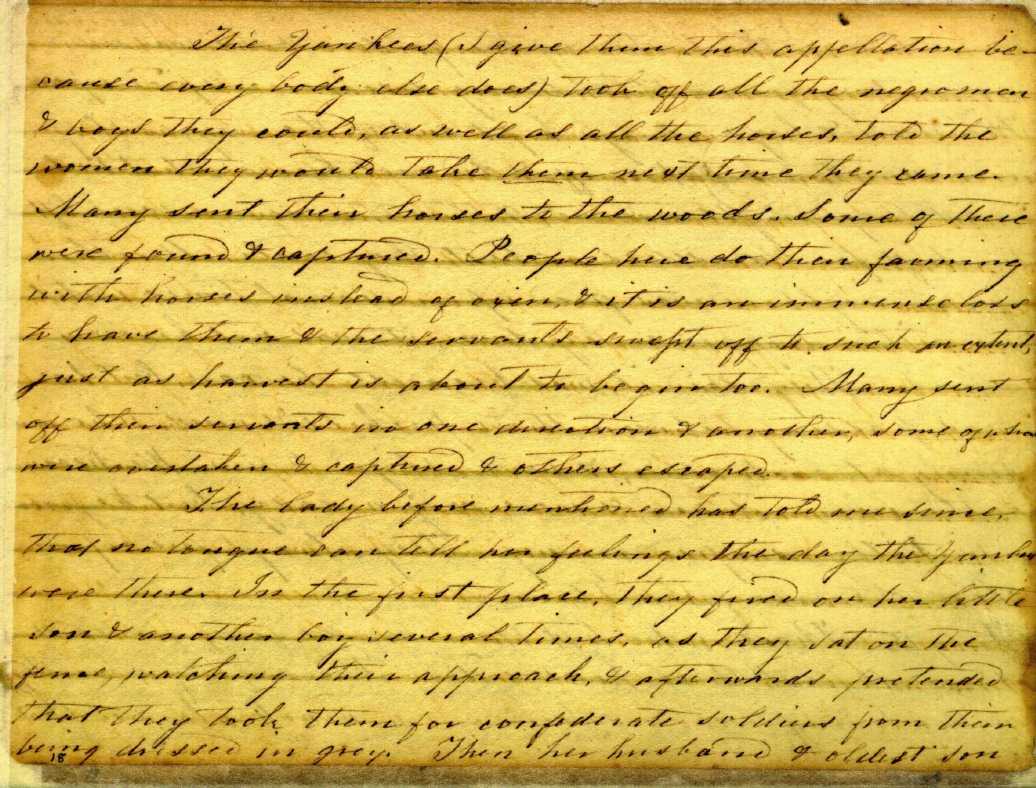 The Yankees (I give them this appellation be-
cause every body else does) took off all the negro men
& boys they could, as well as all the horses, told the
women they would take them next time they came.
Many sent their horses to the woods. Some of these
were found & captured. People here do their farming
with horses instead of oxen, & it is an immense loss
to have them & the servants swept off to such an extent,
just as harvest is about to begin too. Many sent
off their servants in one direction & another, some of whom
were overtaken & captured & others escaped.
The lady before mentioned has told me since,
that no tongue can tell her feelings the day the Yankees
were there. In the first place, they fired on her little
son & another boy several times, as they sat on the
fence, watching their approach, & afterwards pretended
that they took them for confederate soldiers from their
being dressed in grey. Then her husband & oldest son
18